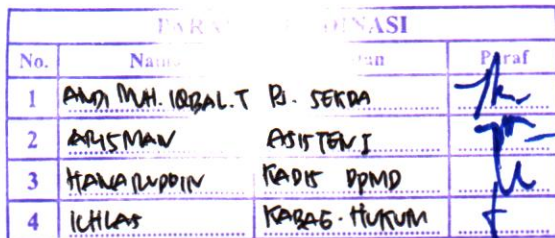 PARA INASI
No. Nam tan Paraf
1 ANDI MUH. IQBAL.T PJ. SEKDA
2 ARISMAN ASISTEN I
3 HANARUDDIN KADIS DPMD
4 ICHLAS KABAG. HUKUM